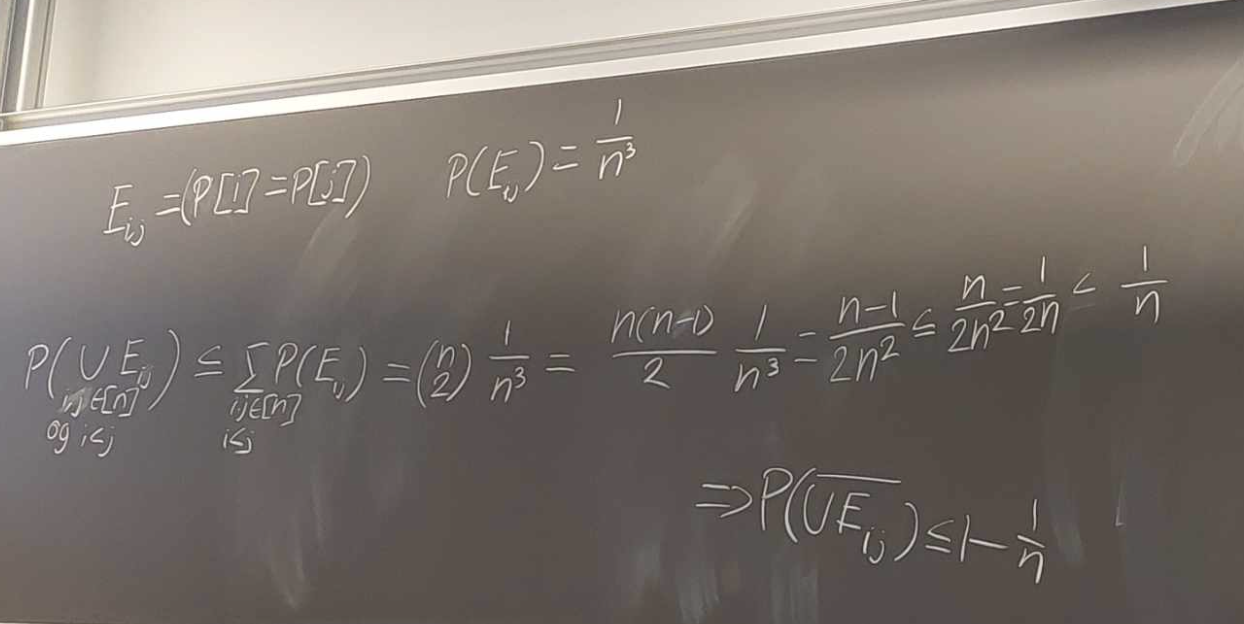 E_{ij} = (P[i] = P[j])   P(E_{ij}) = \frac{1}{n^3}
P(\bigcup_{i,j \in [n] og i<j} E_{ij}) ≤ \sum_{ij \in [n] i<j} P(E_{ij}) = \binom{n}{2} \frac{1}{n^3} = \frac{n(n-1)}{2} \frac{1}{n^3} = \frac{n-1}{2n^2} ≤ \frac{n}{2n^2} = \frac{1}{2n} < \frac{1}{n}
⇒ P(\overline{\bigcup E_{ij}}) ≤ 1 - \frac{1}{n}